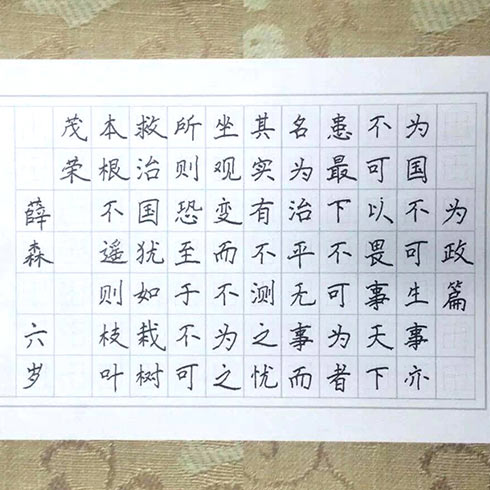 为政篇
为国不可生事亦
不可以畏事天下
患最下不可为者
名为治平无事而
其实有不测之忧
坐观变而不为之
所则恐至于不可
救治国犹如栽树
本根不遥则枝叶
茂荣
薛森 六岁